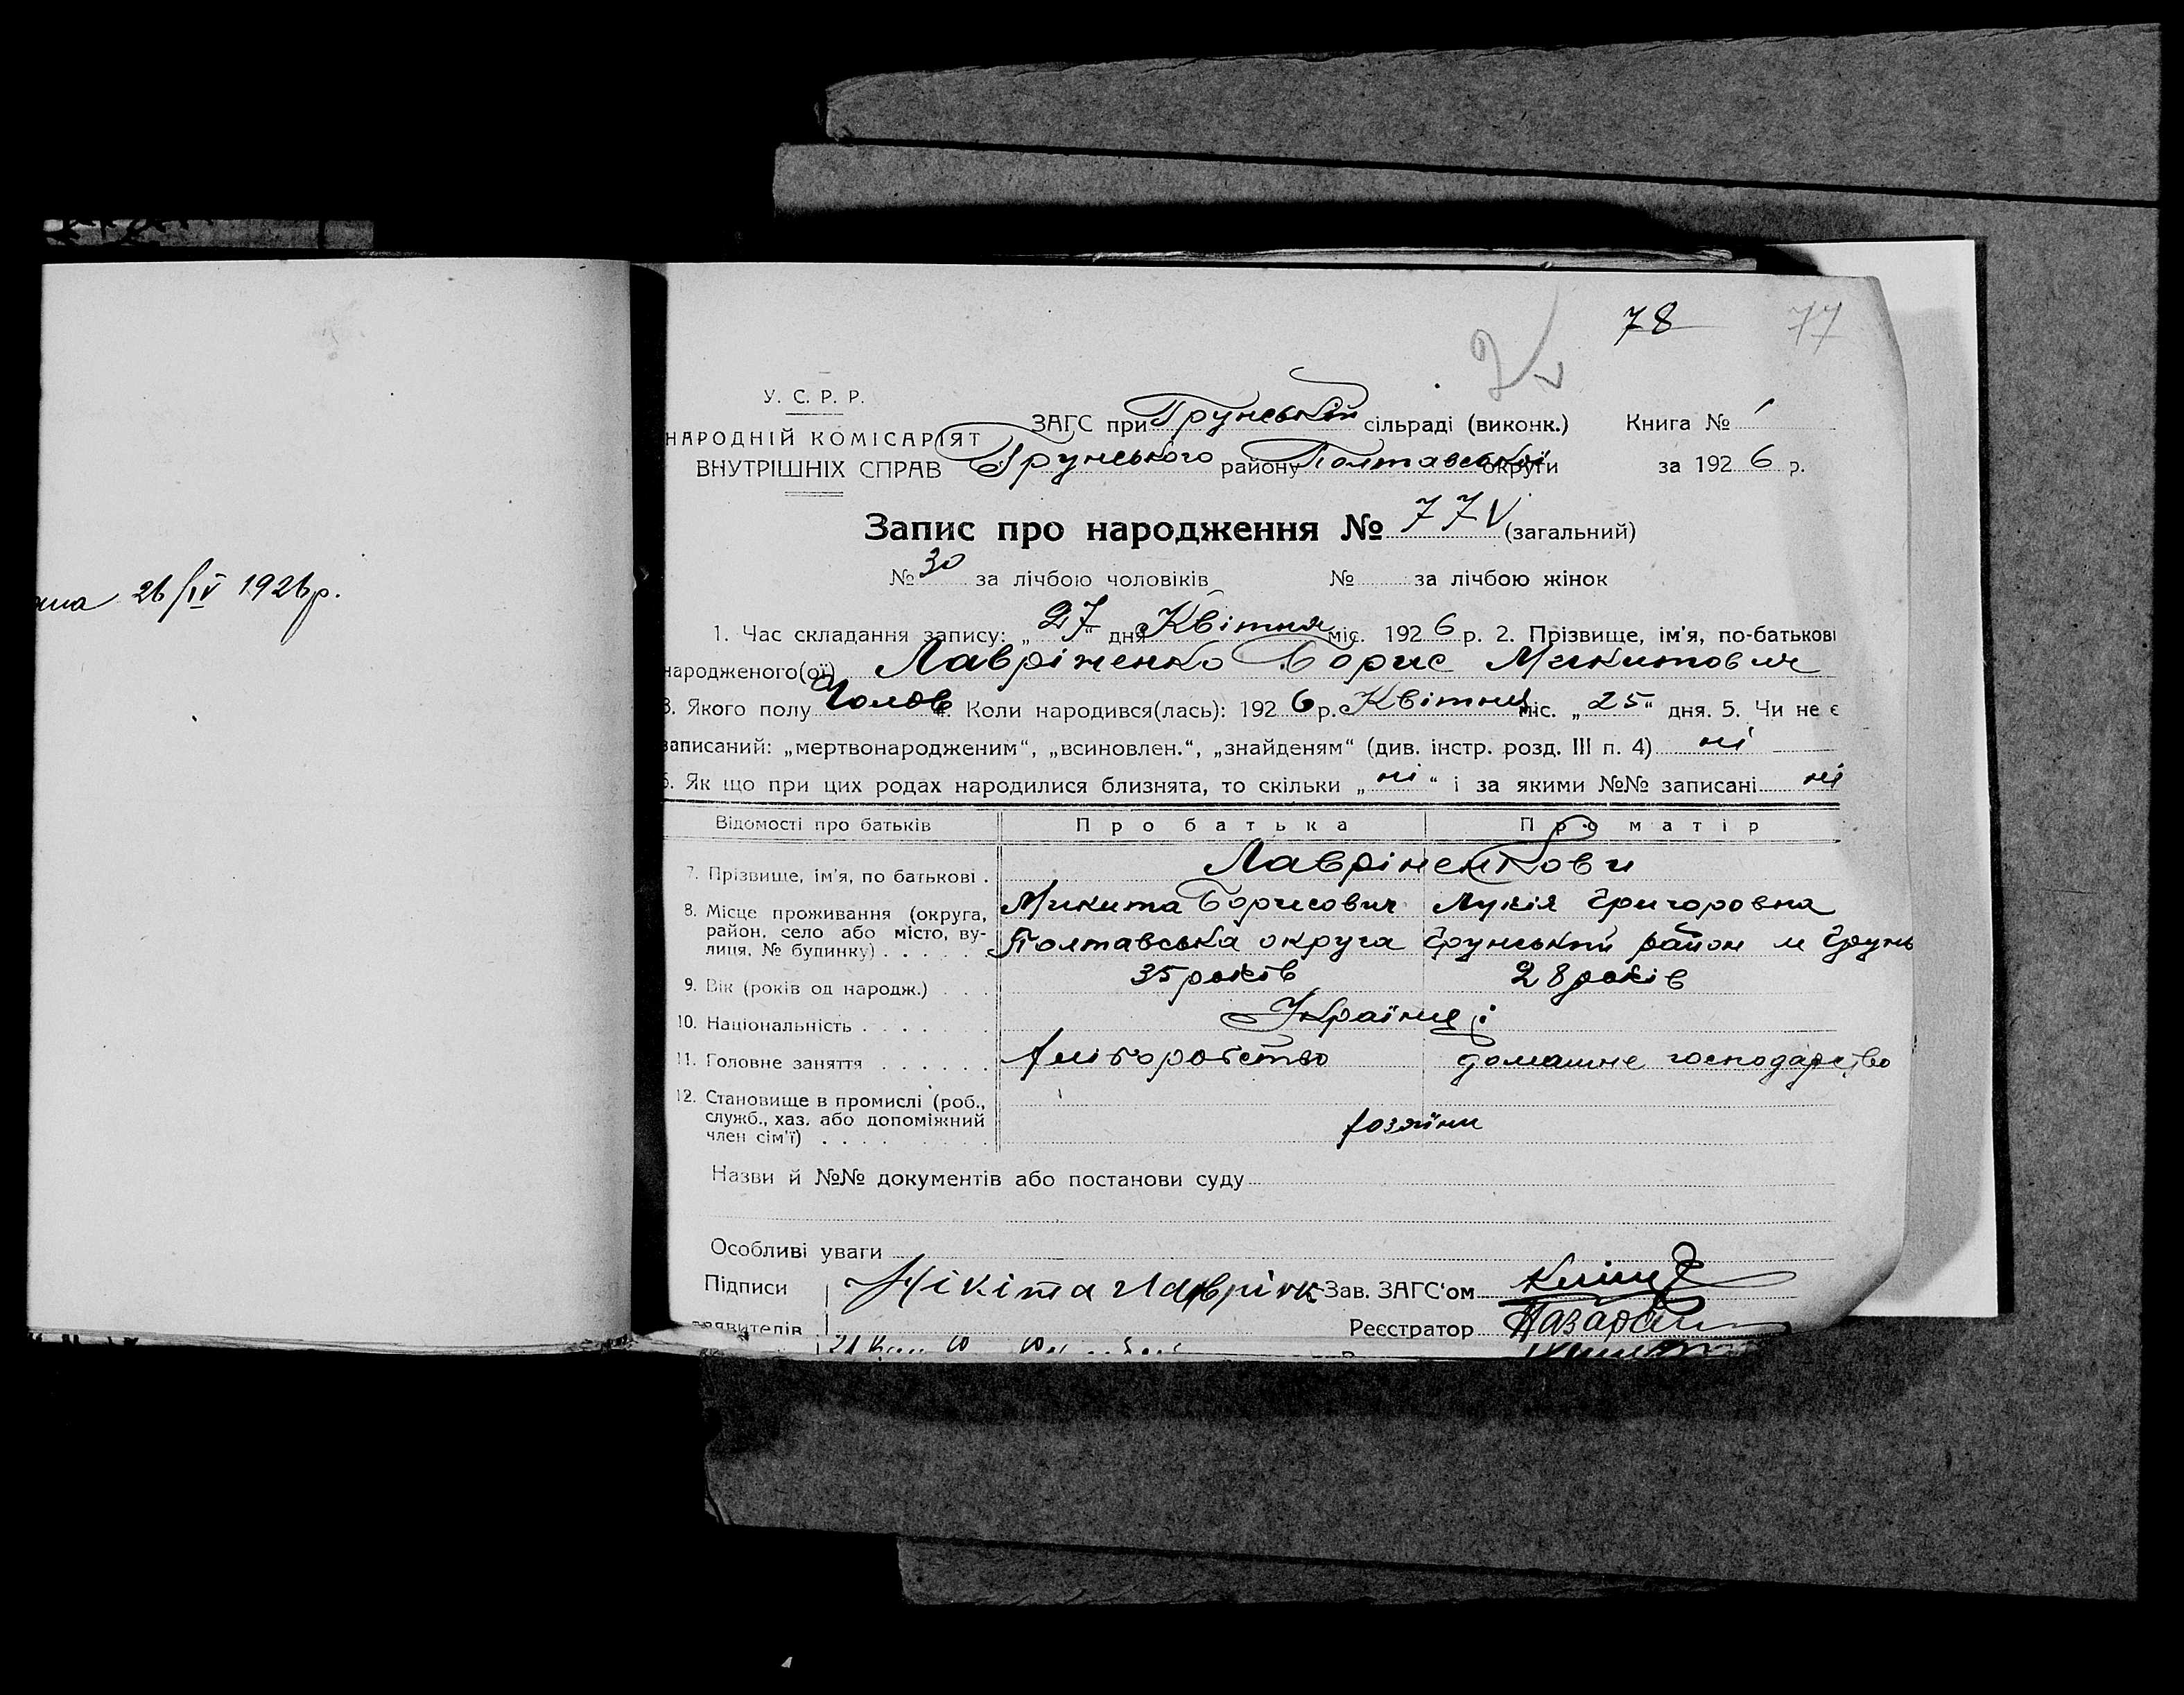 78 77
У. С. Р. Р.
ЗАГС при Грунській сільраді (виконк.) Книга № 1
НАРОДНІЙ КОМІСАРІЯТ
ВНУТРІШНІХ СПРАВ Грунського району Полтавської округи за 1926 р.
Запис про народження № 77 (загальний)
№ 30 за лічбою чоловіків № за лічбою жінок
26/IV 1926р.
1. Час складання запису: „27“ дня Квітня міс. 1926 р. 2. Прізвище, ім'я, по-батькові
народженого(ої) Лавріненко Борис Микитович
3. Якого полу Чолов 4. Коли народився(лась): 1926 р. Квітня міс. „25“ дня. 5. Чи не є
записаний: „мертвонародженим“, „всиновлен.“, „знайденям“ (див. інстр. розд. III п. 4) ні
6. Як що при цих родах народилися близнята, то скільки „ні“ і за якими №№ записані ні
Відомості про батьків Про батька Про матір
7. Прізвище, ім'я, по батькові . Лавріненкови
Микита Борисович Лукія Григоровна
8. Місце проживання (округа, район, село або місто, вулиця, № будинку) . . . . . Полтавська округа Грунський район м Грунь
9. Вік (років од народж.) . . . 35 років 28 років
10. Національність . . . . . . . Українці
11. Головне заняття . . . . . . Хліборобство домашне господарство
12. Становище в промислі (роб.,
служб., хаз. або допоміжний
член сім'ї) . . . . Хозяїни
Назви й №№ документів або постанови суду
Особливі уваги
Підписи Нікіта Лаврінк Зав. ЗАГС'ом
заявителів Реєстратор